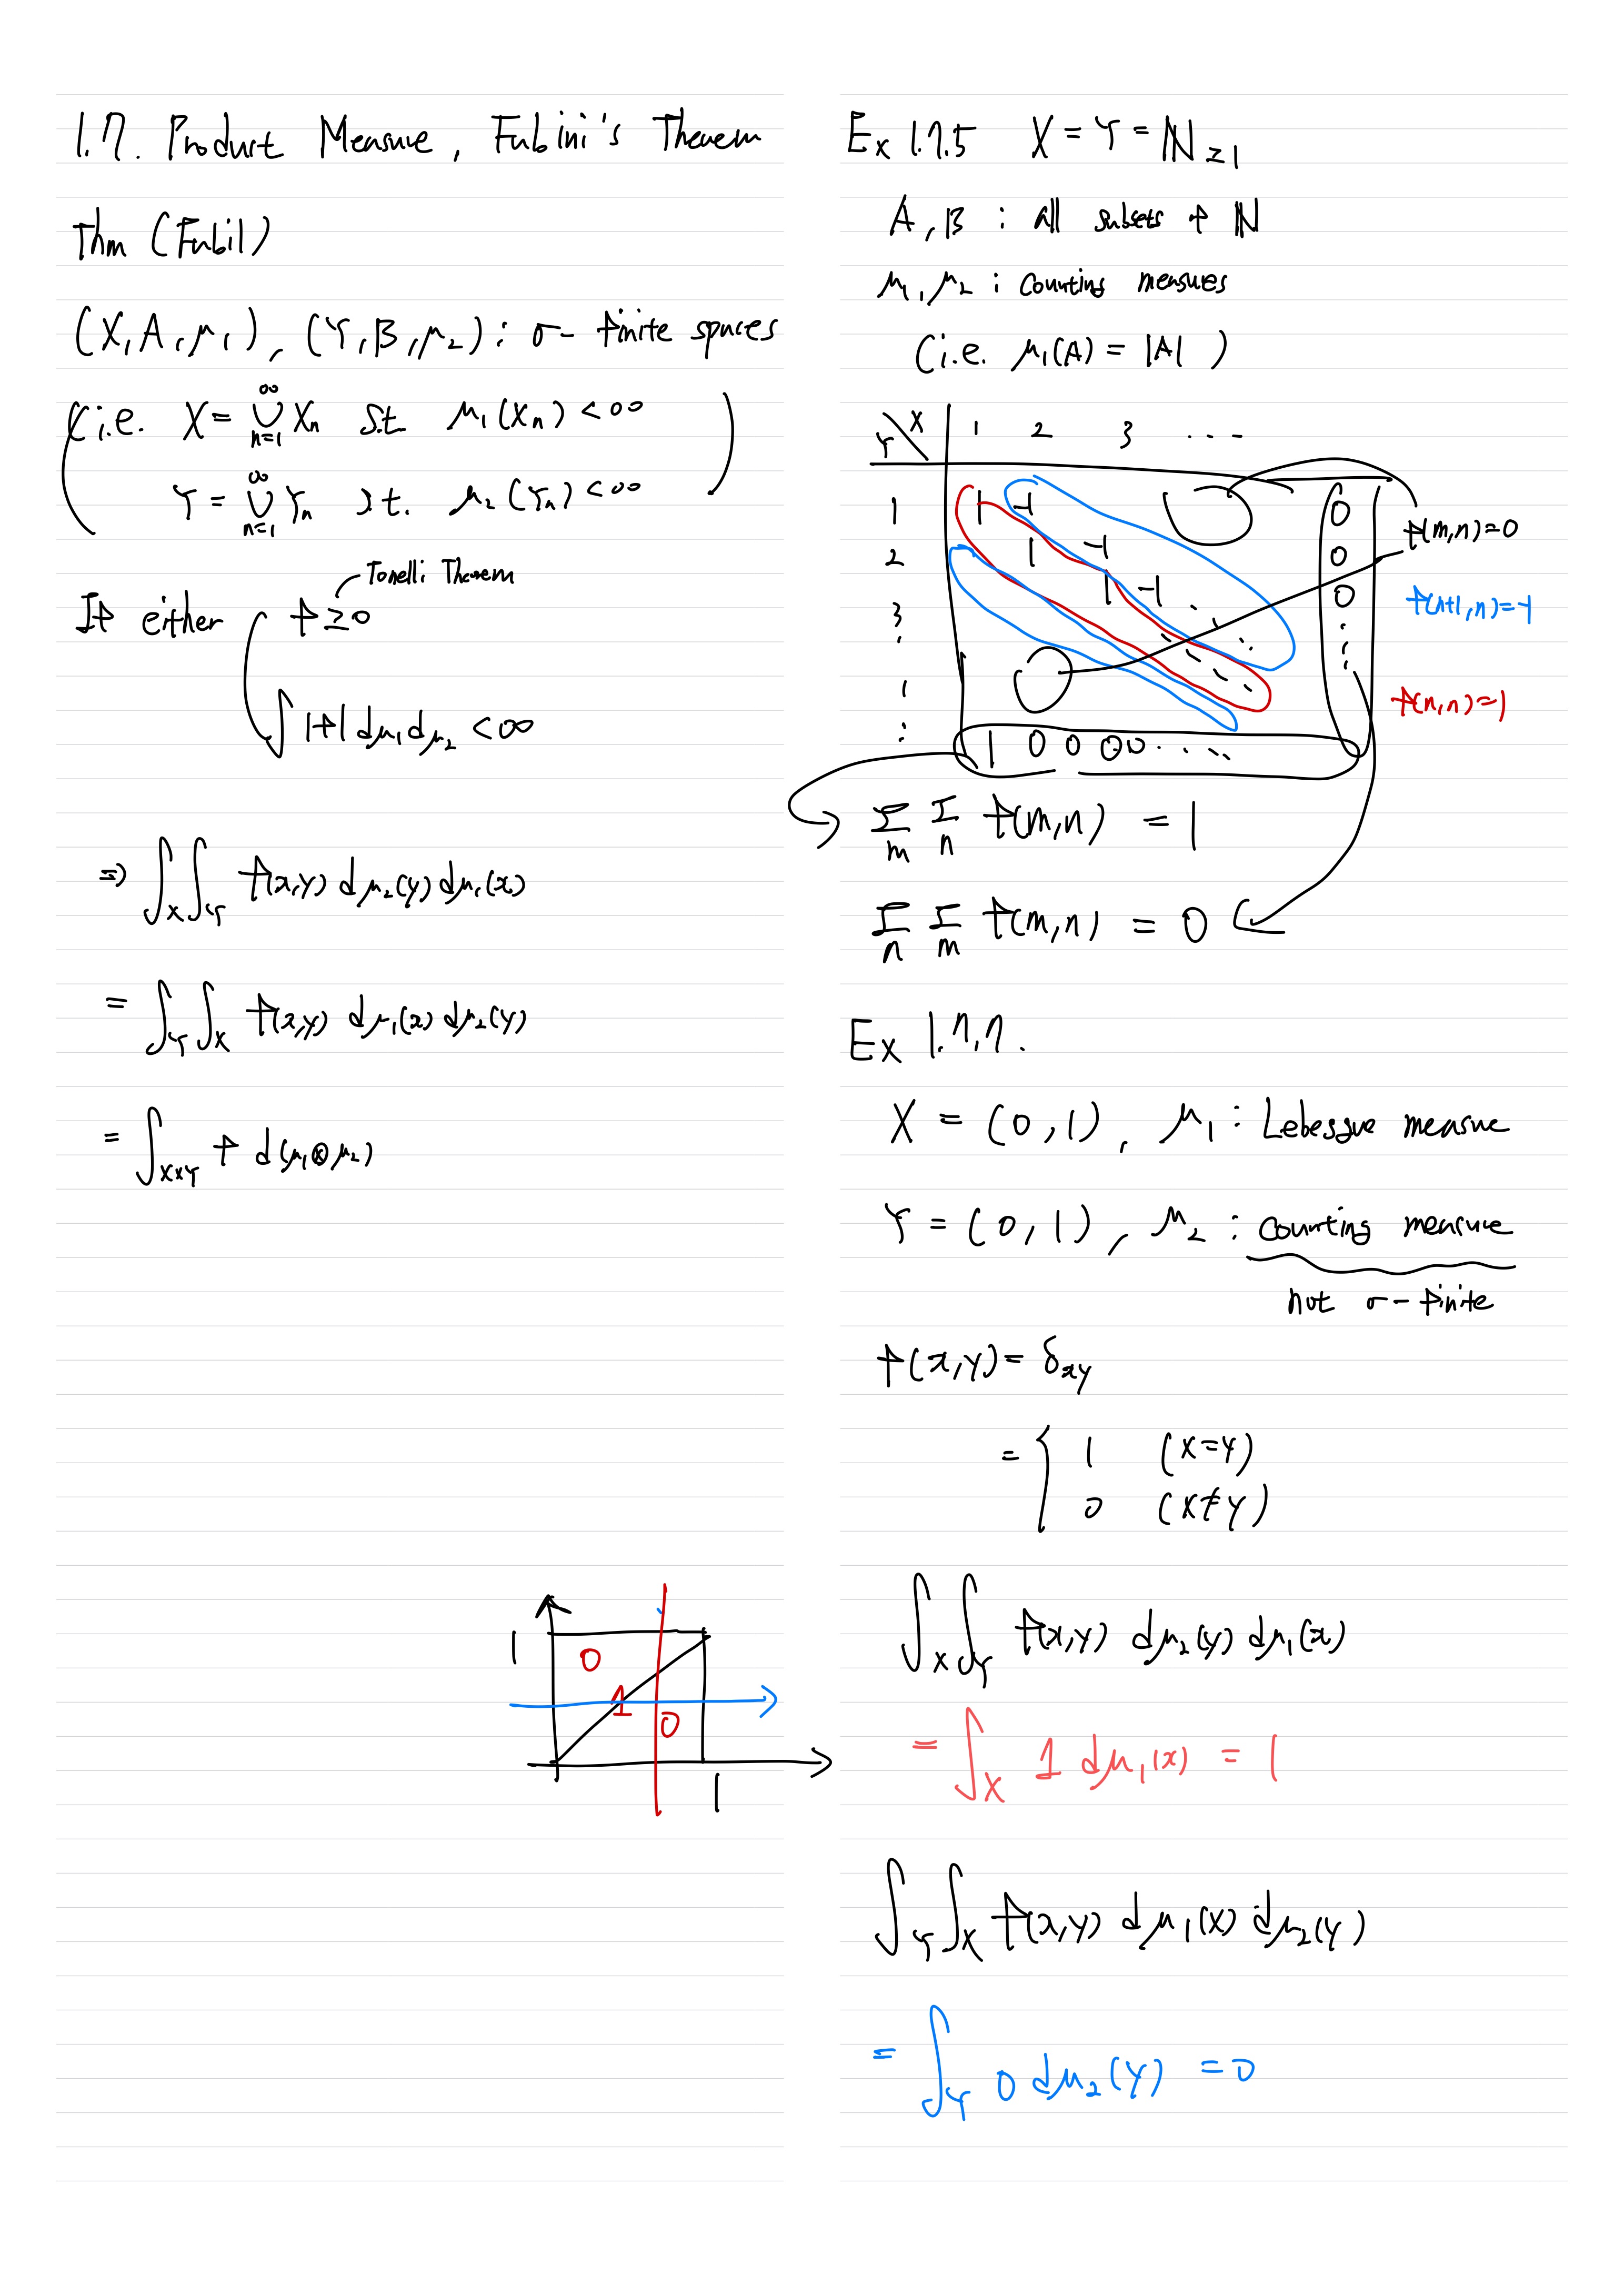 1.7. Product Measure, Fubini's Theorem
Thm (Fubil)
(X, A, μ₁), (Y, B, μ₂) : σ- finite spaces
(i.e. X = ∪_{n=1}^∞ Xₙ s.t. μ₁(Xₙ) < ∞
Y = ∪_{n=1}^∞ Yₙ s.t. μ₂(Yₙ) < ∞)
Tonelli Theorem
If either f ≥ 0
∫ |f| dμ₁ dμ₂ < ∞
⇒ ∫_X ∫_Y f(x,y) dμ₂(y) dμ₁(x)
= ∫_Y ∫_X f(x,y) dμ₁(x) dμ₂(y)
= ∫_{X×Y} f d(μ₁⊗μ₂)
1
0
1
0
1
Ex 1.7.5 X = Y = ℕ_{≥1}
A, B : all subsets f ℕ
μ₁, μ₂ : counting measures
(i.e. μ₁(A) = |A| )
Y\X 1 2 3 ...
1 1 -1 0 0
2 1 -1 0
3 1 -1 0
0
1 0 0 0 0 ...
f(m,n)=0
f(n+1,n)=-1
f(n,n)=1
Σ_m Σ_n f(m,n) = 1
Σ_n Σ_m f(m,n) = 0
Ex 1.7.7.
X = (0,1), μ₁ : Lebesgue measure
Y = (0,1), μ₂ : counting measure
not σ- finite
f(x,y) = δ_{xy}
= { 1 (x=y)
0 (x≠y)
∫_X ∫_Y f(x,y) dμ₂(y) dμ₁(x)
= ∫_X 1 dμ₁(x) = 1
∫_Y ∫_X f(x,y) dμ₁(x) dμ₂(y)
= ∫_Y 0 dμ₂(y) = 0